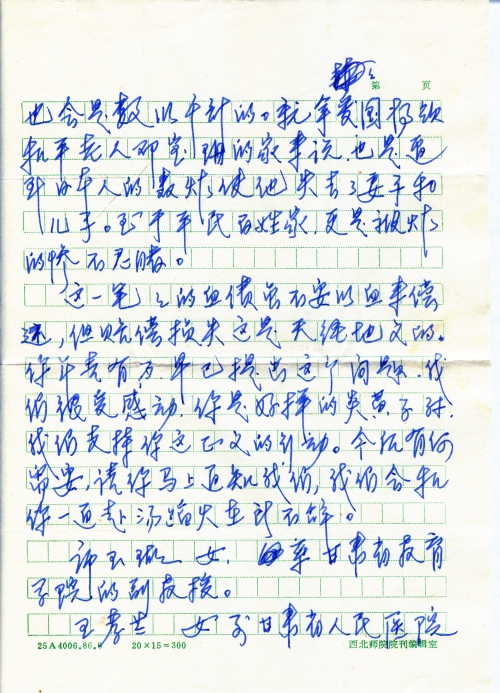 第 页
也会是数以千计的。就拿爱国将领
和平老人邓宝珊的家来说,也是遭
到日本人的轰炸使他失去了妻子和
儿子。至于平民百姓家,更是被炸
的惨不忍睹。
这一笔笔的血债虽不要以血来偿
还,但赔偿损失这是天经地义的。
你 早已提出这个问题,我
们很受感动,你是好样的炎黄子孙,
我们支持你这正义的行动。今后有何
需要,请你马上通知我们,我们会和
你一道赴汤蹈火在所不辞。
女, 甘肃省教育
学院的副教授。
王孝兰 女 甘肃省人民医院
25A4006.86.9 20×15=300 西北师院院刊编辑室